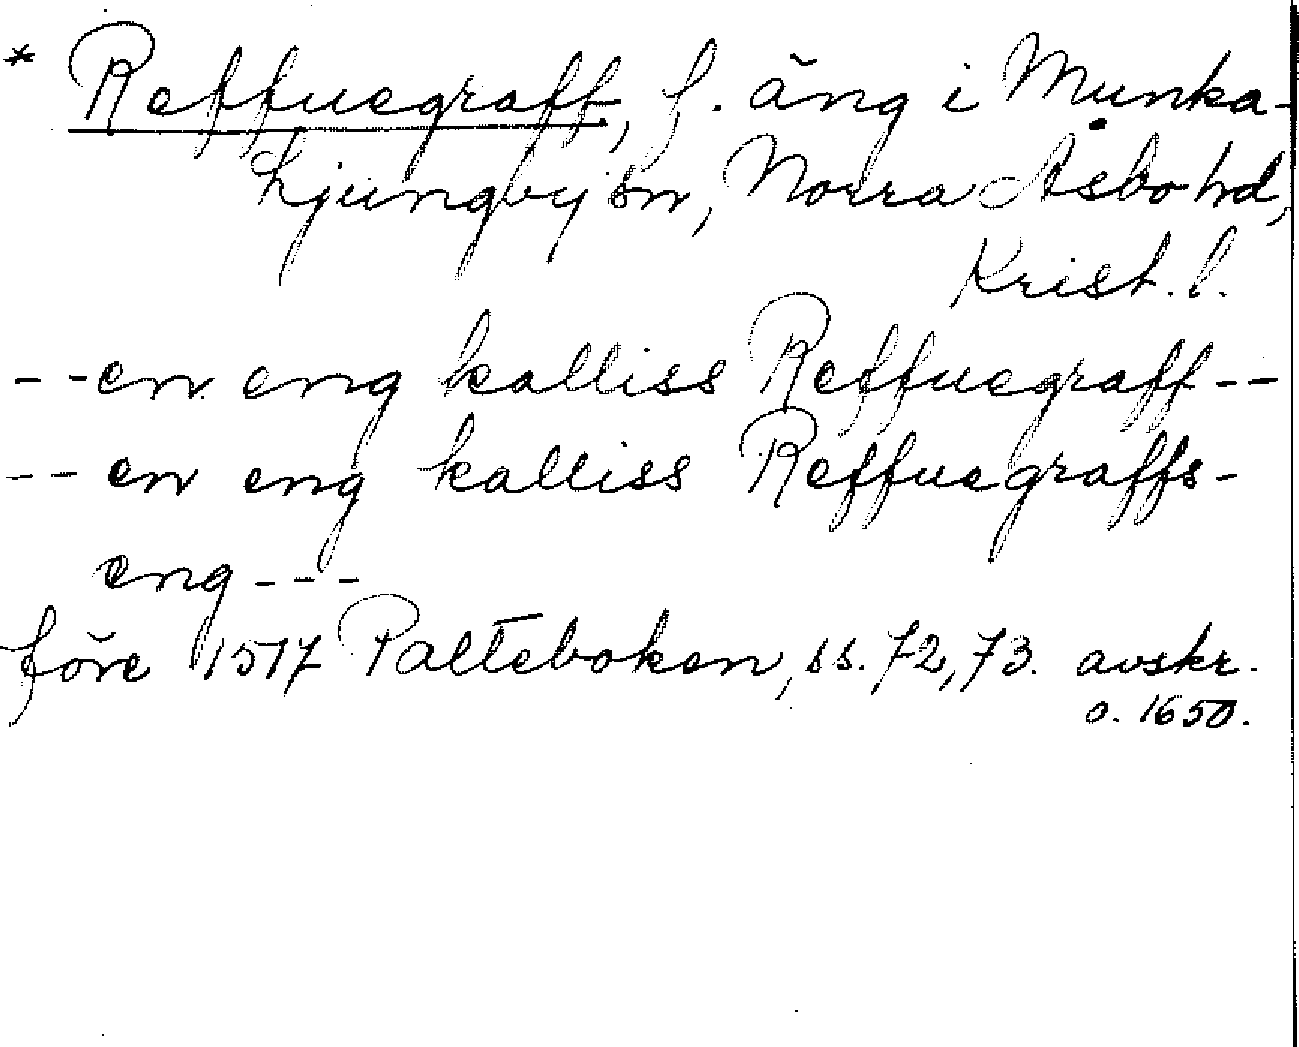 * Reffuegraff, f. äng i Munka-
Ljungby sn, Norra Åsbo hd,
Krist. l.
- - en eng kalliss Reffuegraff - -
- - en eng kalliss Reffuegraffs-
eng - - -
före 1517 Palteboken, ss. 72, 73. avskr.
o. 1650.